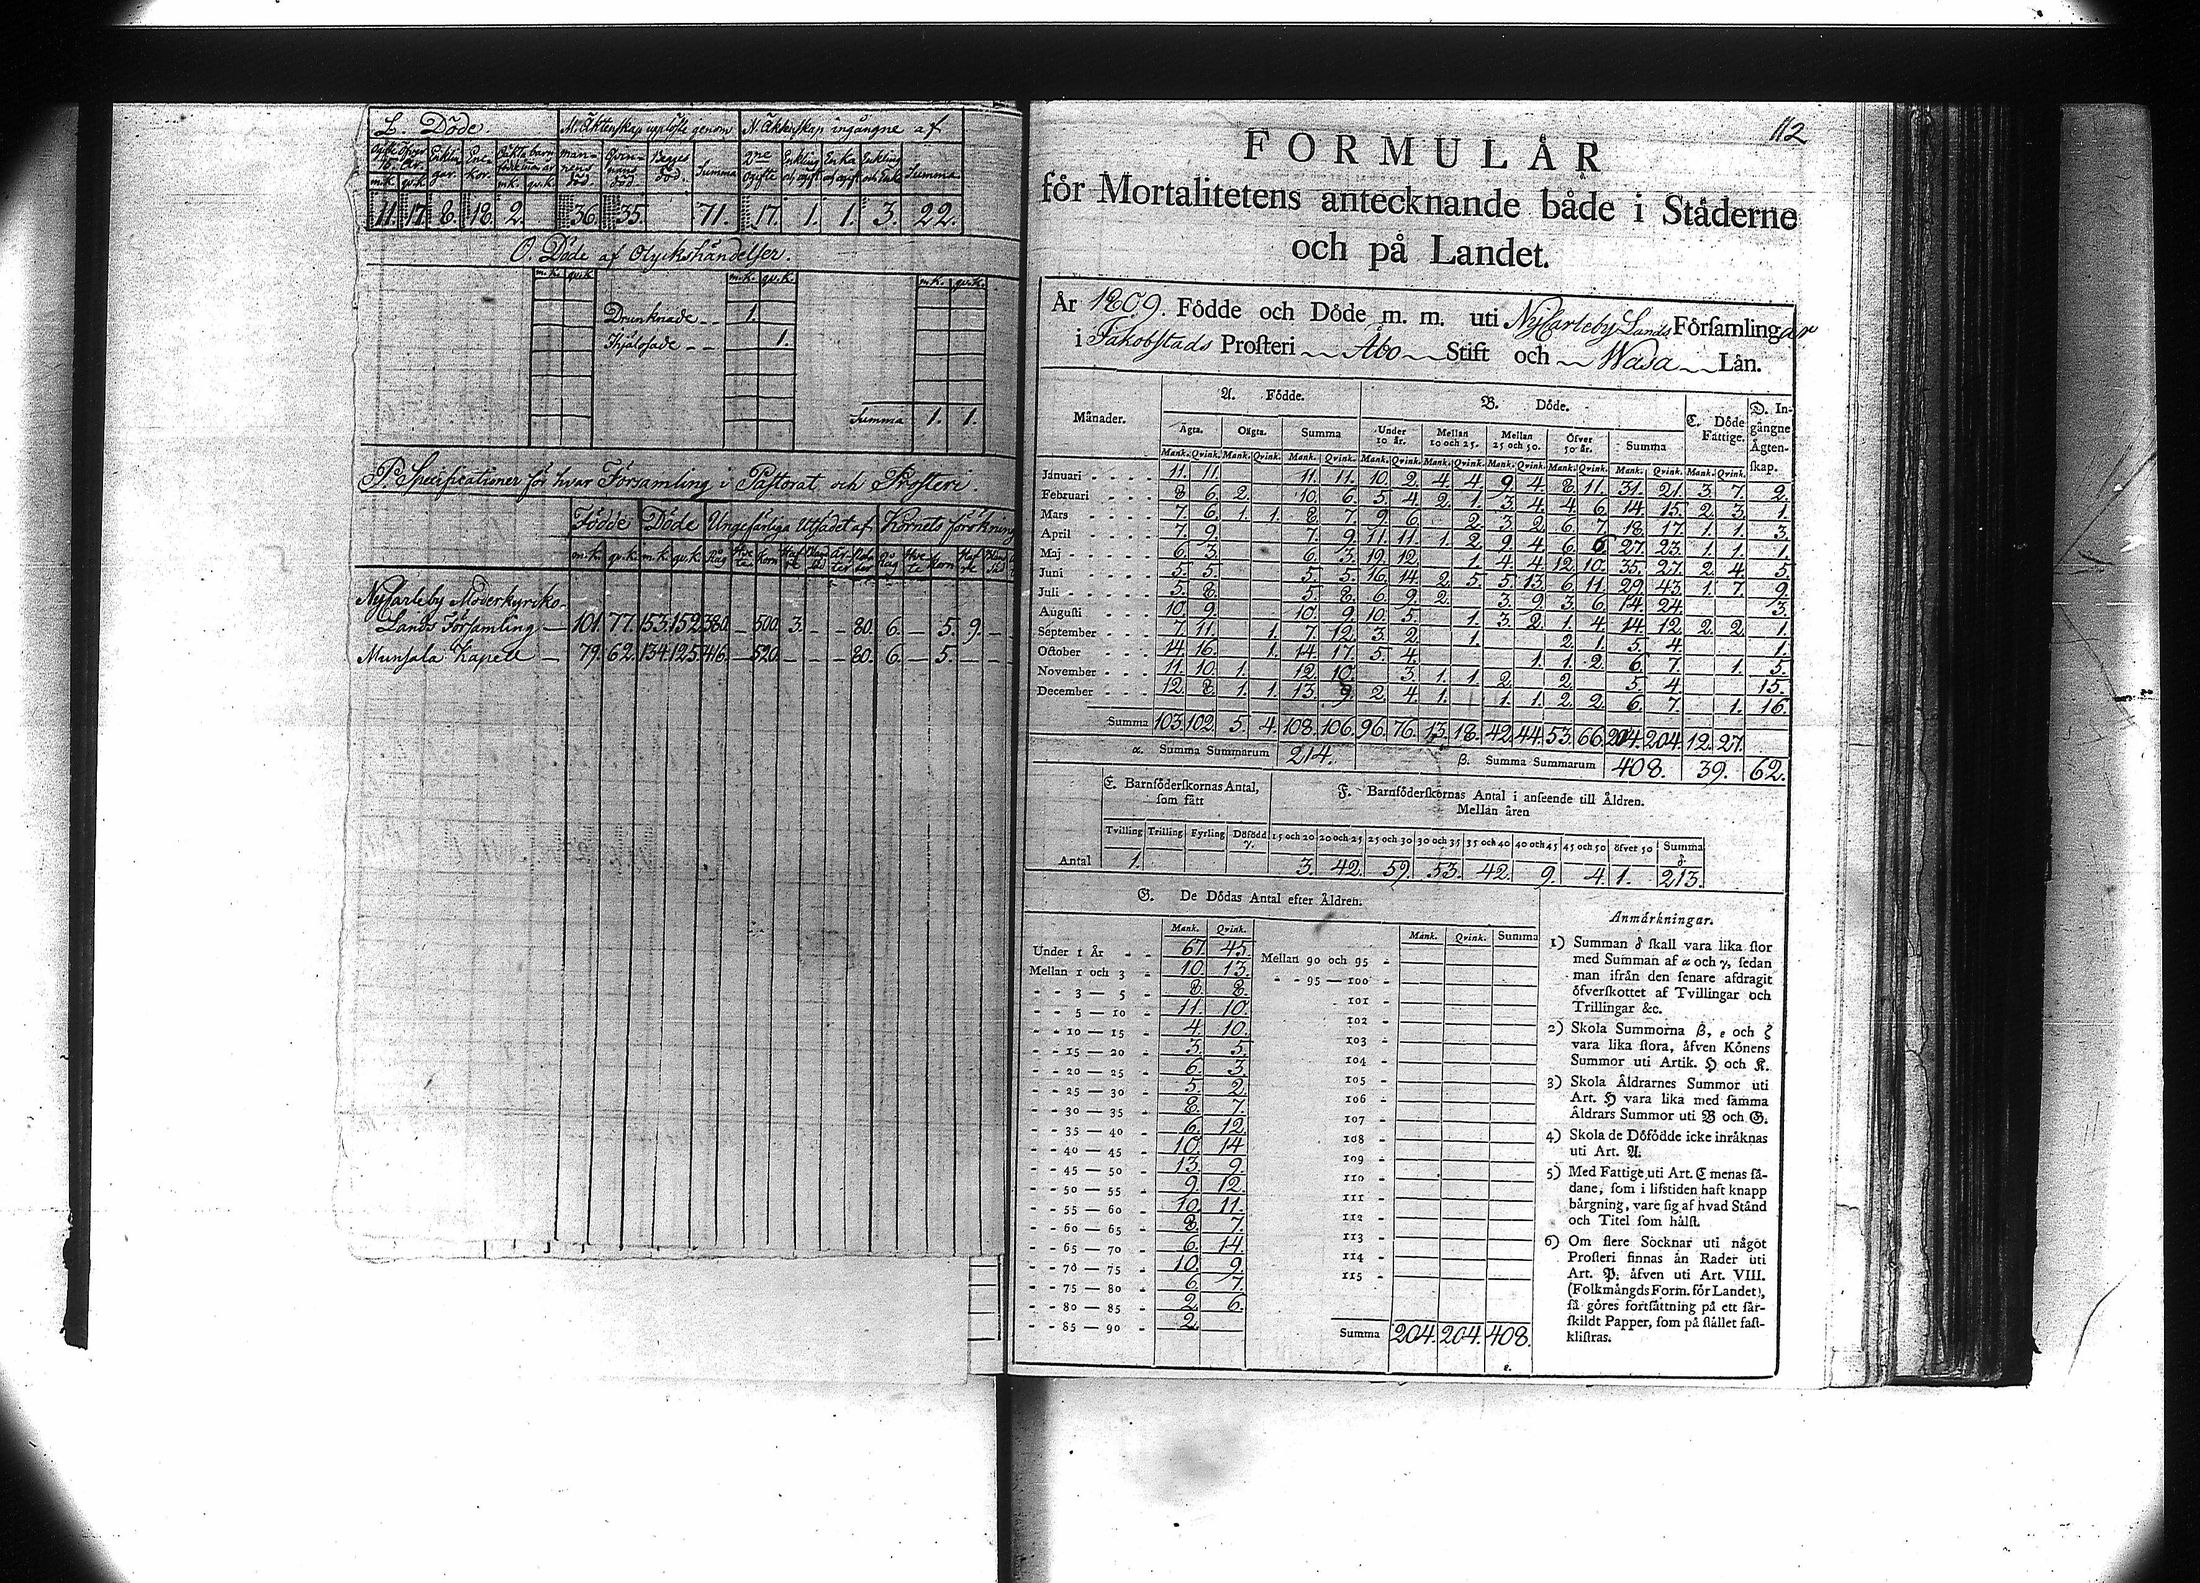 L. Döde. M. Äktenskap uplöste genom N. Äktenskap ingångne af
m.k. qv.k. m.k. qv.k. Summa Summa
11. 17. 8. 18. 2. 36. 35. 71. 17. 1. 1. 3. 22.
O. Döde af Olyckshändelser.
m.k. qv.k. m.k. qv.k. m.k. qv.k.
Drunknade 1.
Ihjälosade 1.
Summa 1. 1.
P. Specificationer för hvar Församling i Pastorat och Prosteri.
Födde Döde Ungefärliga Utsädet af Kornets förökning
m.k. qv.k. m.k. qv.k.
NyCarleby Moderkyrko-
Lands Församling 101. 77. 153. 152. 380. 500. 3. 80. 6. 5. 9.
Munsala Kapell 79. 62. 134. 125. 416. 520. 80. 6. 5.
112
FORMULÅR
för Mortalitetens antecknande både i Ståderne
och på Landet.
År 1809. Födde och Döde m. m. uti NyCarleby Lands Församlingar
i Jakobstads Prosteri Åbo Stift och Wasa Lån.
Månader. A. Födde. B. Döde. C. Döde Fattige. D. Ingångne Ågtenskap.
Ågta. Oågta. Summa Under 10 år. Mellan 10 och 25. Mellan 25 och 50. Öfver 50 år. Summa
Mank. Qvink. Mank. Qvink. Mank. Qvink. Mank. Qvink. Mank. Qvink. Mank. Qvink. Mank. Qvink. Mank. Qvink. Mank. Qvink.
Januari 11. 11. 11. 11. 10. 2. 4. 4. 9. 4. 8. 11. 31. 21. 3. 7. 2.
Februari 8. 6. 2. 10. 6. 5. 4. 2. 1. 3. 4. 4. 6. 14. 15. 2. 3. 1.
Mars 7. 6. 1. 1. 8. 7. 9. 6. 2. 3. 2. 6. 7. 18. 17. 1. 1. 3.
April 7. 9. 7. 9. 11. 11. 1. 2. 9. 4. 6. 6. 27. 23. 1. 1. 1.
Maj 6. 3. 6. 3. 19. 12. 1. 4. 4. 12. 10. 35. 27. 2. 4. 5.
Juni 5. 5. 5. 5. 16. 14. 2. 5. 5. 13. 6. 11. 29. 43. 1. 7. 9.
Juli 5. 8. 5. 8. 6. 9. 2. 3. 9. 3. 6. 14. 24. 3.
Augusti 10. 9. 10. 9. 10. 5. 1. 3. 2. 1. 4. 14. 12. 2. 2. 1.
September 7. 11. 1. 7. 12. 3. 2. 1. 2. 1. 5. 4. 1.
October 14. 16. 1. 14. 17. 5. 4. 1. 1. 2. 6. 7. 1. 5.
November 11. 10. 1. 12. 10. 3. 1. 1. 2. 2. 5. 4. 15.
December 12. 8. 1. 1. 13. 9. 2. 4. 1. 1. 1. 2. 2. 6. 7. 1. 16.
Summa 103. 102. 5. 4. 108. 106. 96. 76. 13. 18. 42. 44. 53. 66. 204. 204. 12. 27.
α. Summa Summarum 214. β. Summa Summarum 408. 39. 62.
E. Barnföderskornas Antal, som fått
F. Barnföderskornas Antal i anseende till Åldren.
Mellan åren
Tvilling Trilling Fyrling Dödfödd γ. 15 och 20 20 och 25 25 och 30 30 och 35 35 och 40 40 och 45 45 och 50 öfver 50 Summa δ.
Antal 1. 3. 42. 59. 53. 42. 9. 4. 1. 213.
G. De Dödas Antal efter Åldren.
Mank. Qvink. Mank. Qvink. Summa
Under 1 År 67. 45. Mellan 90 och 95
Mellan 1 och 3 10. 13. 95 — 100
3 — 5 8. 8. 101
5 — 10 11. 10. 102
10 — 15 4. 10. 103
15 — 20 3. 5. 104
20 — 25 6. 3. 105
25 — 30 5. 2. 106
30 — 35 8. 7. 107
35 — 40 6. 12. 108
40 — 45 10. 14 109
45 — 50 13. 9. 110
50 — 55 9. 12. 111
55 — 60 10. 11. 112
60 — 65 8. 7. 113
65 — 70 6. 14. 114
70 — 75 10. 9. 115
75 — 80 6. 7.
80 — 85 2. 6.
85 — 90 2. Summa 204. 204. 408.
ε.
Anmårkningar.
1) Summan δ skall vara lika stor
med Summan af α och γ, sedan
man ifrån den senare afdragit
öfverskottet af Tvillingar och
Trillingar &c.
2) Skola Summorna β, ε och ζ
vara lika stora, åfven Könens
Summor uti Artik. H och K.
3) Skola Åldrarnes Summor uti
Art. H vara lika med samma
Åldrars Summor uti B och G.
4) Skola de Döfödde icke inråknas
uti Art. A.
5) Med Fattige uti Art. C menas så-
dane, som i lifstiden haft knapp
bårgning, vare sig af hvad Stånd
och Titel som hålst.
6) Om flere Socknar uti något
Prosteri finnas ån Rader uti
Art. P. åfven uti Art. VIII.
(Folkmångds Form. för Landet),
så göres fortsåttning på ett sår-
skildt Papper, som på stållet fast-
klistras.